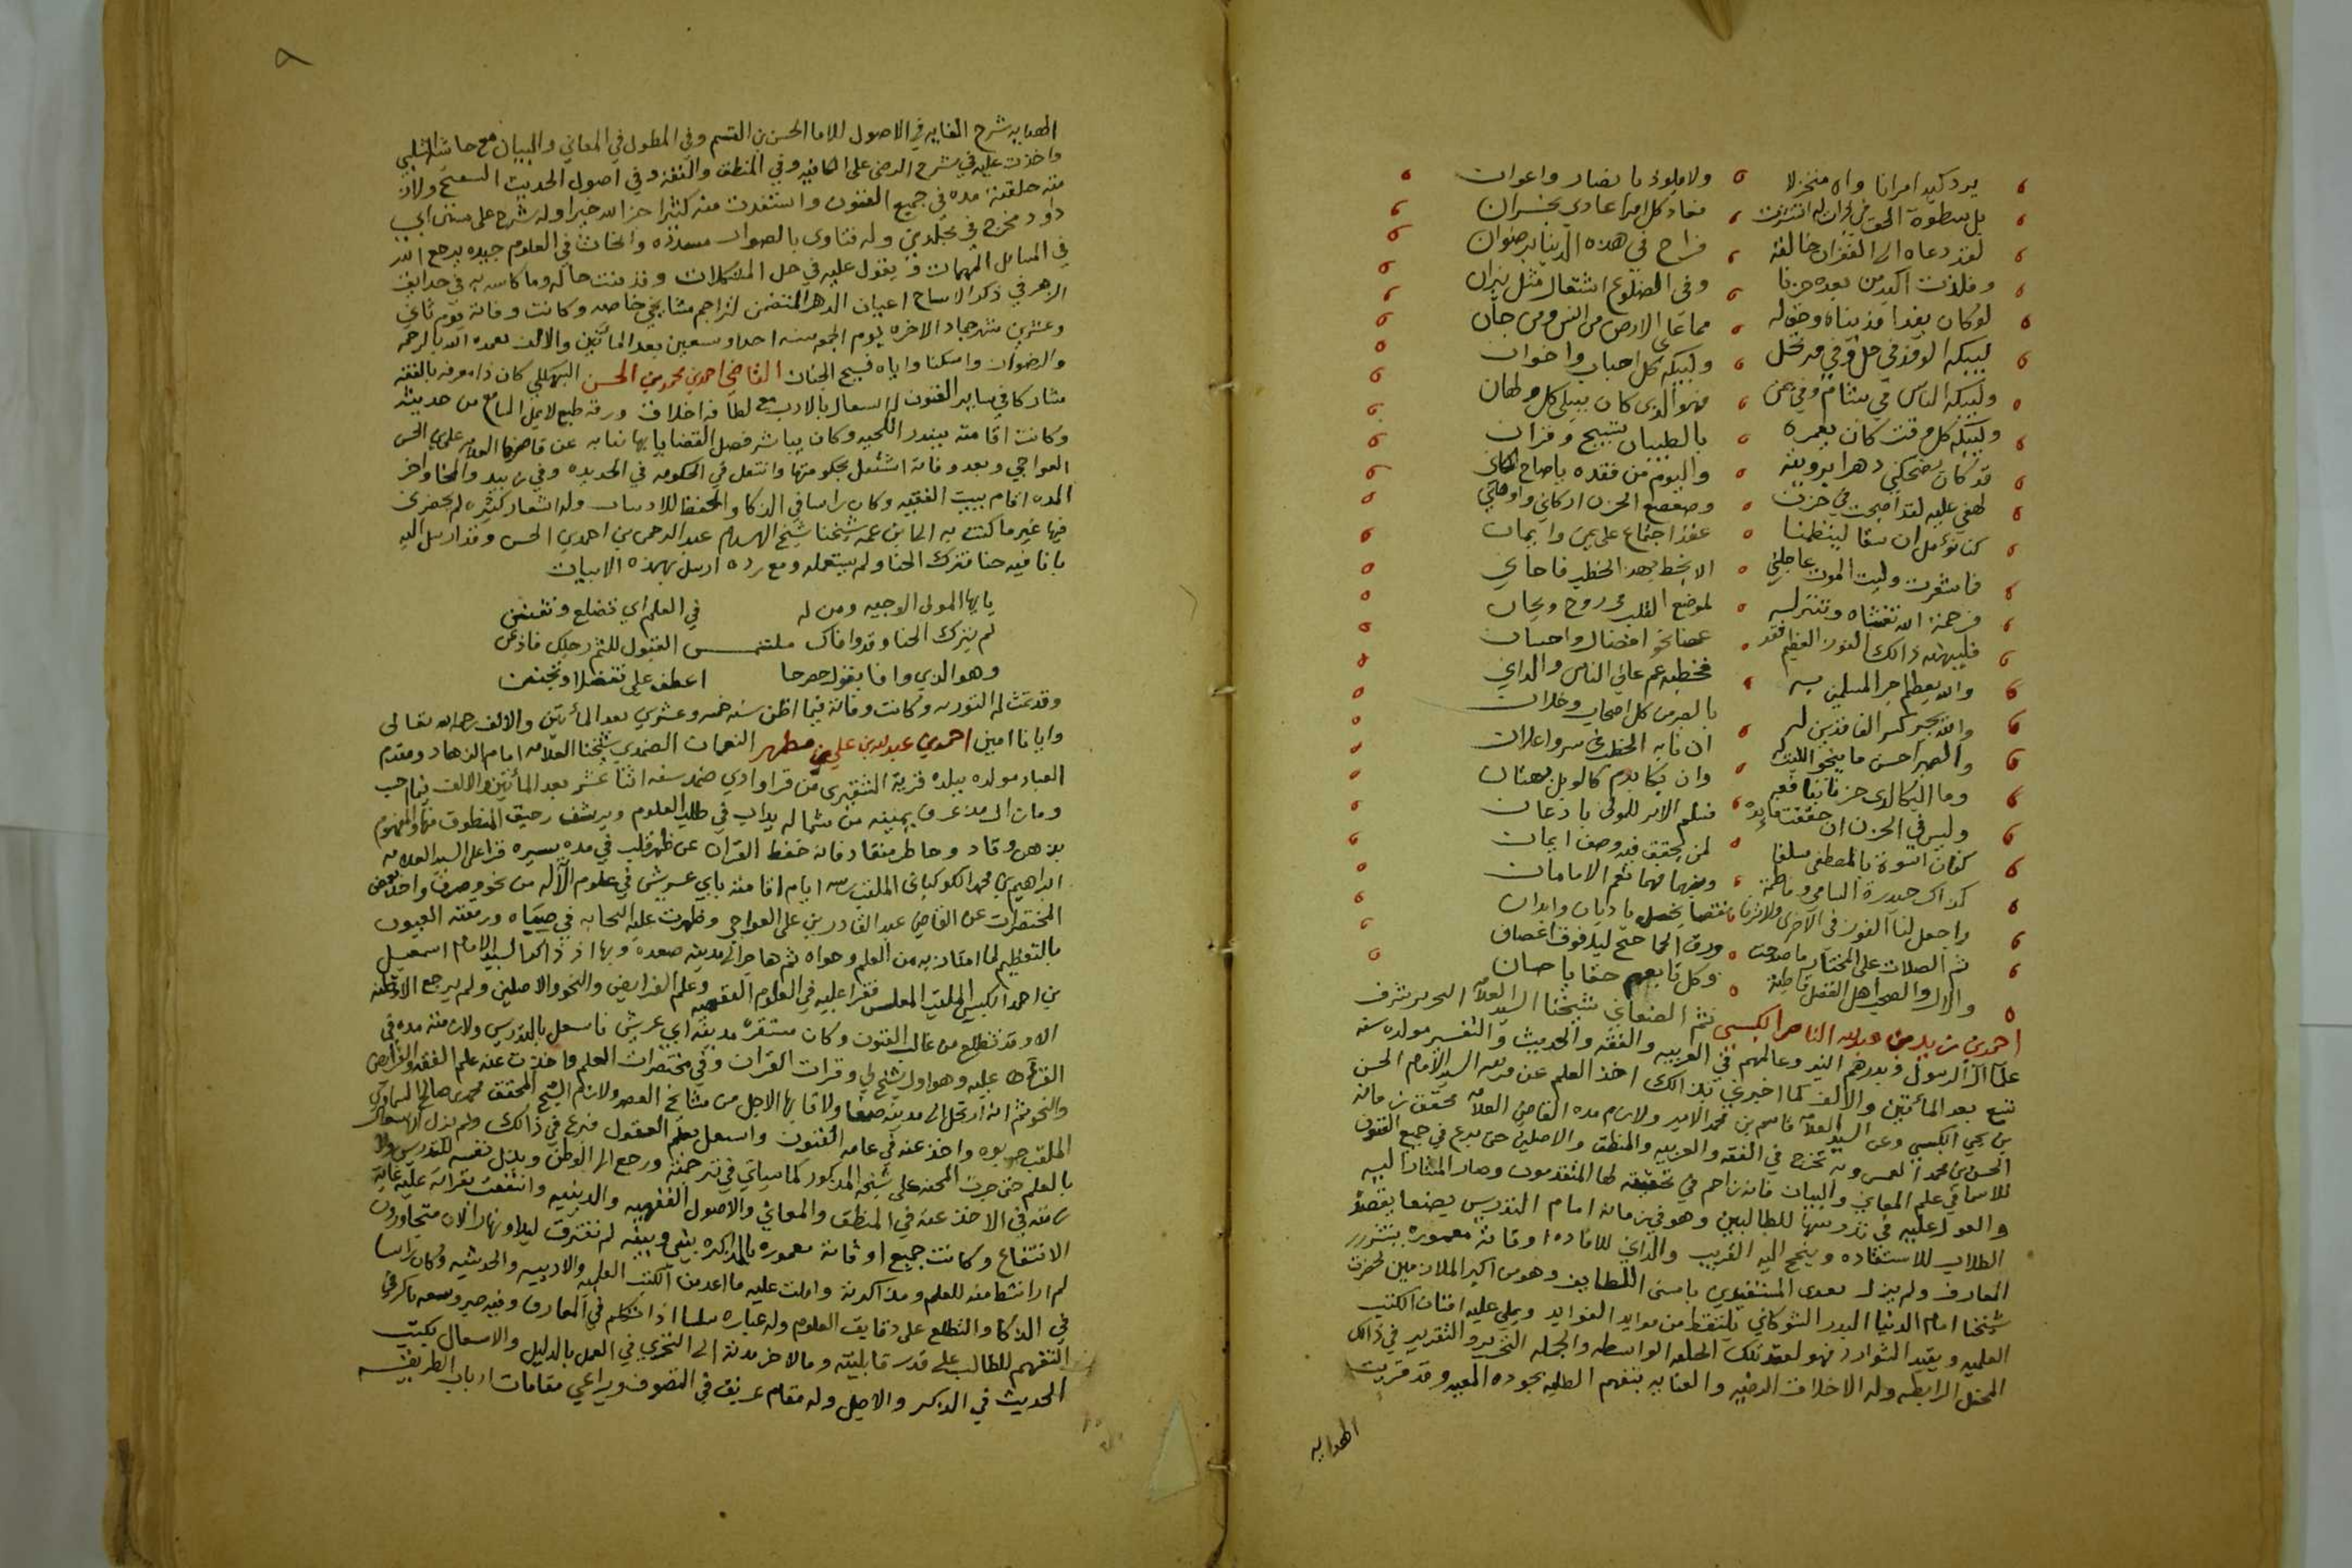 يرد كيد امرانا واه منخزلا ولا يلوذ بانصار واعوان
بل سطوة الحق في نجران له انتشرت فعاد كل امرا عادي بخسران
لقد دعاه الى الغفران خالقه فراح في هذه الدنيا برضوان
وفلذت اكبدمن بعده حزنا وفي الضلوع اشتعال مثل نيران
لو كان يفدا فديناه وحق له مما على الارض من انس ومن جان
ليبكه الوفد في حل وفي مرتحل وليبكه كل احباب واخوان
وليبكه الناس في شام وفي يمن فهو الذي كان يبلى كل ولهان
وليبكه كل وقت كان يعمره بالطيبات تسبيح وقران
قد كان يضحكني دهرا برويته واليوم من فقده ياصاح ابكاني
لهفي عليه لقد اصبحت في حزن وضعضع الحزن اركاني واوهاني
كنا نؤمل ان نبقا لينظمنا عقد اجتماع على يمن وايمان
فاشعرت وليت الموت عاجلني الا بخط بهذ الخطب فاجاني
فرحمة الله تغشاه وتنزله لموضع القلب في روح وريحان
فليهنه ذالك الفوز العظيم فقد عضا نحو افضال واحسان
والله يعظم اجر المسلمين به فخطبه عم عالي الناس والداني
والله يجبر كسر الفاقدين له بالصبر من كل اصحاب وخلان
والصبر احسن ما ينحو اللبيب له ان نابه الخطب في سر واعلان
وما البكا لدى حزن بنافعه وان بكا بدم كالوبل هتان
وليس في الحزن ان حققت فائدة فسلم الامر للمولى باذعان
كفان اسوة بالمصطفى سلفا لمن تحقق فيه وصف ايمان
كذاك حيدرة السامي وفاطمة ومنهما فهما نعم الامامان
واجعل لنا الفوز في الاخرى ولا ترنا نقصا يخصل باديان وابدان
ثم الصلات على المختار ما صدحت ورق الحما حتح ليلا فوق اغصان
والال والصحب اهل الفضل قاطبة وكل تابعهم حقا باحسان
احمد بن زيد بن عبدالله الناصر الكبسي ثم الصنعاني شيخنا السيد العلامه النحرير شرف
علما ال الرسول وبدرهم النير وعالمهم في العربيه والفقه والحديث والتفسير مولده سنه
تسع بعد المائتين والالف كما اخبرني بذالك اخذ العلم عن السيد الامام الحسن
بن يحي الكبسي وعن السيد العلامه قاسم بن محمد الامير ولازم مده القاضي العلامه محقق زمانه
الحسن بن محمد وبه تخرج في الفقه والعربيه والمنطق والاصلين حتى برع في جميع الفنون
للاسما في علم المعاني والبيان فانه زاحم في تحقيقه لها المتقدمون وصار المشار اليه
والمعول عليه في تدريسها للطالبين وهو في زمانه امام التدريس بصنعا يقصده
الطلاب للاستفاده وينجح اليه القريب والداني للافاده اوقاته معموره بنشر
المعارف ولم يزل المستفيدين باسنى اللطايف وهو من اكبر الملازمين لحضرت
شيخنا امام الدنيا البدر الشوكاني يلتقط من موايد الفوايد ويملي عليه امهات الكتب
العلميه ويقيد الشوارد فهو لعقد تلك الحلقه الواسطه والجمله التحرير والتقرير في ذالك
المحفل الرابطه وله الاخلاق الرضيه والعنايه بتفهم الطلبه بجوده وقد قريت
الهدايه
٨
الهدايه شرح الغايه في الاصول للاما الحسن بن القسم وفي المطول في المعاني والبيان مع حاشيه الشلبي
واخذت عليه في شرح الرضى على الكافيه وفي المنطق والفقه وفي اصول الحديث ولازمت
حلقته مده في جميع الفنون واستفدت منه كثيرا جزاه الله خيرا وله شرح على سنن ابي
داود مخرج في مجلدين وله فتاوى بالصواب مسدده وابحاث في العلوم جيده يرجع اليه
في المسائل المهمات ويعول عليه في حل المشكلات وقد بينت حاله وما كاتب به في حدايق
الزهر في ذكر الاشياخ اعيان الدهر المتضمن لتراجم مشايخي خاصه وكانت وفاته يوم ثاني
وعشرين شهر جماد الاخره ليوم الجمعه سنه احدا وسبعين بعد المائتين والالف تغمده الله بالرحمه
والرضوان واسكنا واياه فسيح الجنان القاضي احمد بن محمد بن الحسن البهكلي كان ذا معرفه بالفقه
مشاركا في ساير الفنون له اشتغال بالادب مع لطافه اخلاق ورقه طبع لا يمل السامع من حديثه
وكانت اقامته ببندر اللحيه وكان يباشر فصل القضايا بها نيابه عن قاضيها العلامه علي بن الحسن
العواجي وبعد وفاته اشتغل بحكومتها وانتقل في الحكومه في الحديده وفي زبيد والمخا واخر
المده اقام ببيت الفقيه وكان راسا في الذكا والحفظ للادبيات وله اشعار كثيره لم يحضرني
فيها غير ما كتب به الى ابن عمه شيخنا شيخ الاسلام عبد الرحمن بن احمد بن الحسن وقد ارسل اليه
بانا فيه حنا فترك الحنا ولم يستعمله ومع رده ارسل بهذه الابيات
يا ايها المولى الوجيه ومن له في العلم اي تضلع وتفنن
لم يترك الحنا وقد وافاك ملتمس القبول للثم رجلك فاذعن
وهو الذي وافا بقول مصرحا اعطف علي تفضلا وتحنن
وقد تمت له التوريه وكانت وفاته فيما اظن سنه خمسه وعشرين بعد المائتين والالف رحمه الله تعالى
وايانا امين احمد بن عبدالله بن علي بن مطهر النعمان الضمدي شيخنا العلامه امام الزهاد ومقدم
العباد مولده ببلده قرية الشقيري من قرا وادي ضمد سنه اثنا عشر بعد المائتين والالف
ومازال مذ عرف يمينه من شماله يداب في طلب العلوم ويرتشف رحيق المنطوق منها والمفهوم
بذهن وقاد وخاطر منقاد فانه حفظ القران عن ظهر قلب في مده يسيره قرا على السيد العلامه
ابراهيم بن محمد الكوكباني الملقب ايام اقامته بابي عريش في علوم الآله من نحو وصرف واخذ بعض
المختصرات عن القاضي عبد القادر بن علي العواجي وظهرت عليه النجابه في صباه ورمقته العيون
بالتعظيم لما امتاز به من العلم وحواه ثم هاجر الى مدينه صعدة وبها اذ ذاك السيد الامام اسمعيل
بن احمد الكبسي الملقب المغلس فقرا عليه في العلوم الفقهيه وعلم الفرايض والنحو والاصلين ولم يرجع الا وطنه
الا وقد تضلع من غالب الفنون وكان مستقره مدينة ابي عريش فاشتغل بالتدريس ولازمته مده في
القراءه عليه وهو اول شيخ لي وقرات القران وفي مختصرات العلم واخذت عنه علم الفقه والفرايض
والنحو ثم انه ارتحل الى مدينه صنعا ولاقا بها الاجل من مشايخ العصر ولازم الشيخ المحقق محمد بن صالح السماوي
الملقب حريوه واخذ عنه في عامه الفنون واشتغل بعلم المعقول فبرع في ذالك ولم يزل الاشتغال
بالعلم حتى جرت المحنه على شيخه المذكور كما سياتي في ترجمته ورجع الى الوطن وبذل نفسه للتدريس
في الاخذ عنه في المنطق والمعاني والاصول الفقهيه والدينيه وانتفعت بقراته عليه غاية
الانتفاع وكانت جميع اوقاته معموره بالمذاكره بيني وبينه لم نفترق ليلا ونهارا لانا متجاورون
لم ار انشط منه للعلم ومذاكرته وامليت عليه ما اعد من الكتب العلميه والادبيه والحديثيه وكان راسا
في الذكا والتطلع على دقايق العلوم وله عباره سلسا اذا تكلم في المعارف وفيه صبر وسعه باكر في
التفهيم للطالب على قدر قابليته ومال اخر مدته الى التحري في العمل بالدليل والاشتغال بكتب
الحديث في البكر والاصيل وله مقام عريق في التصوف ويراعي مقامات ارباب الطريقه